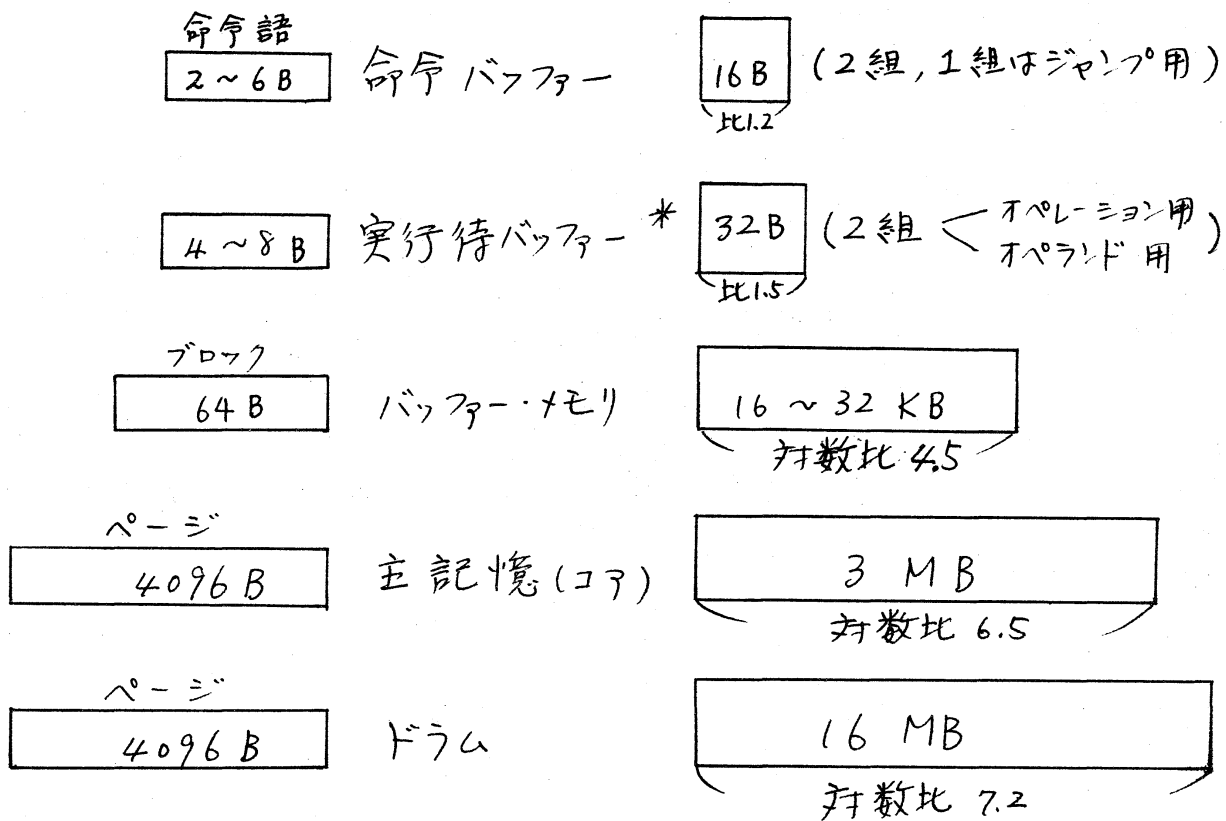 命令語
2～6B 命令バッファー 16B (2組,1組はジャンプ用)
比1.2
4～8B 実行待バッファー* 32B (2組 < オペレーション用
オペランド用)
比1.5
ブロック
64B バッファー・メモリ 16～32KB
対数比4.5
ページ
4096B 主記憶(コア) 3MB
対数比6.5
ページ
4096B ドラム 16MB
対数比7.2